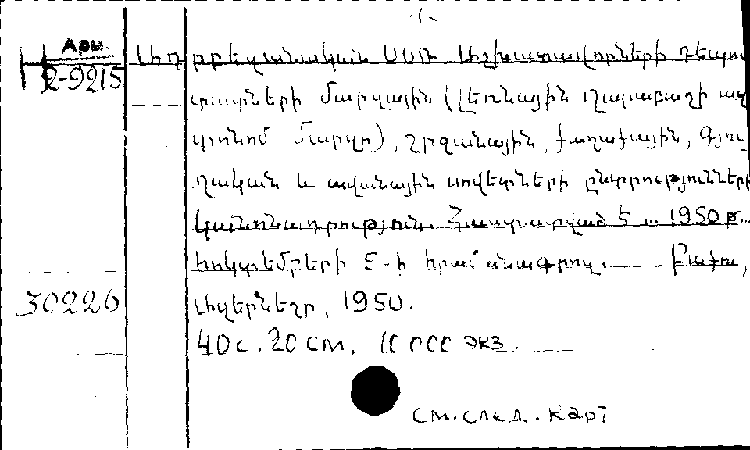 Арм.
2-9215
Ադրբեջանական ՍՍՌ Աշխատավորների դեպու
տատների մարզային (Լեռնային Ղարաբաղի ավ
տոնոմ մարզի), շրջանային, քաղաքային, գյու
ղական և ավանային սովետների ընտրությունների
կանոնադրություն. Հաստատված է 1950 թ.
հոկտեմբերի 5-ի հրամանագրով. — Բաքու,
Ազերնեշր, 1950.
30226
40 с. 20 см. 10 000 экз.
см. след. карт